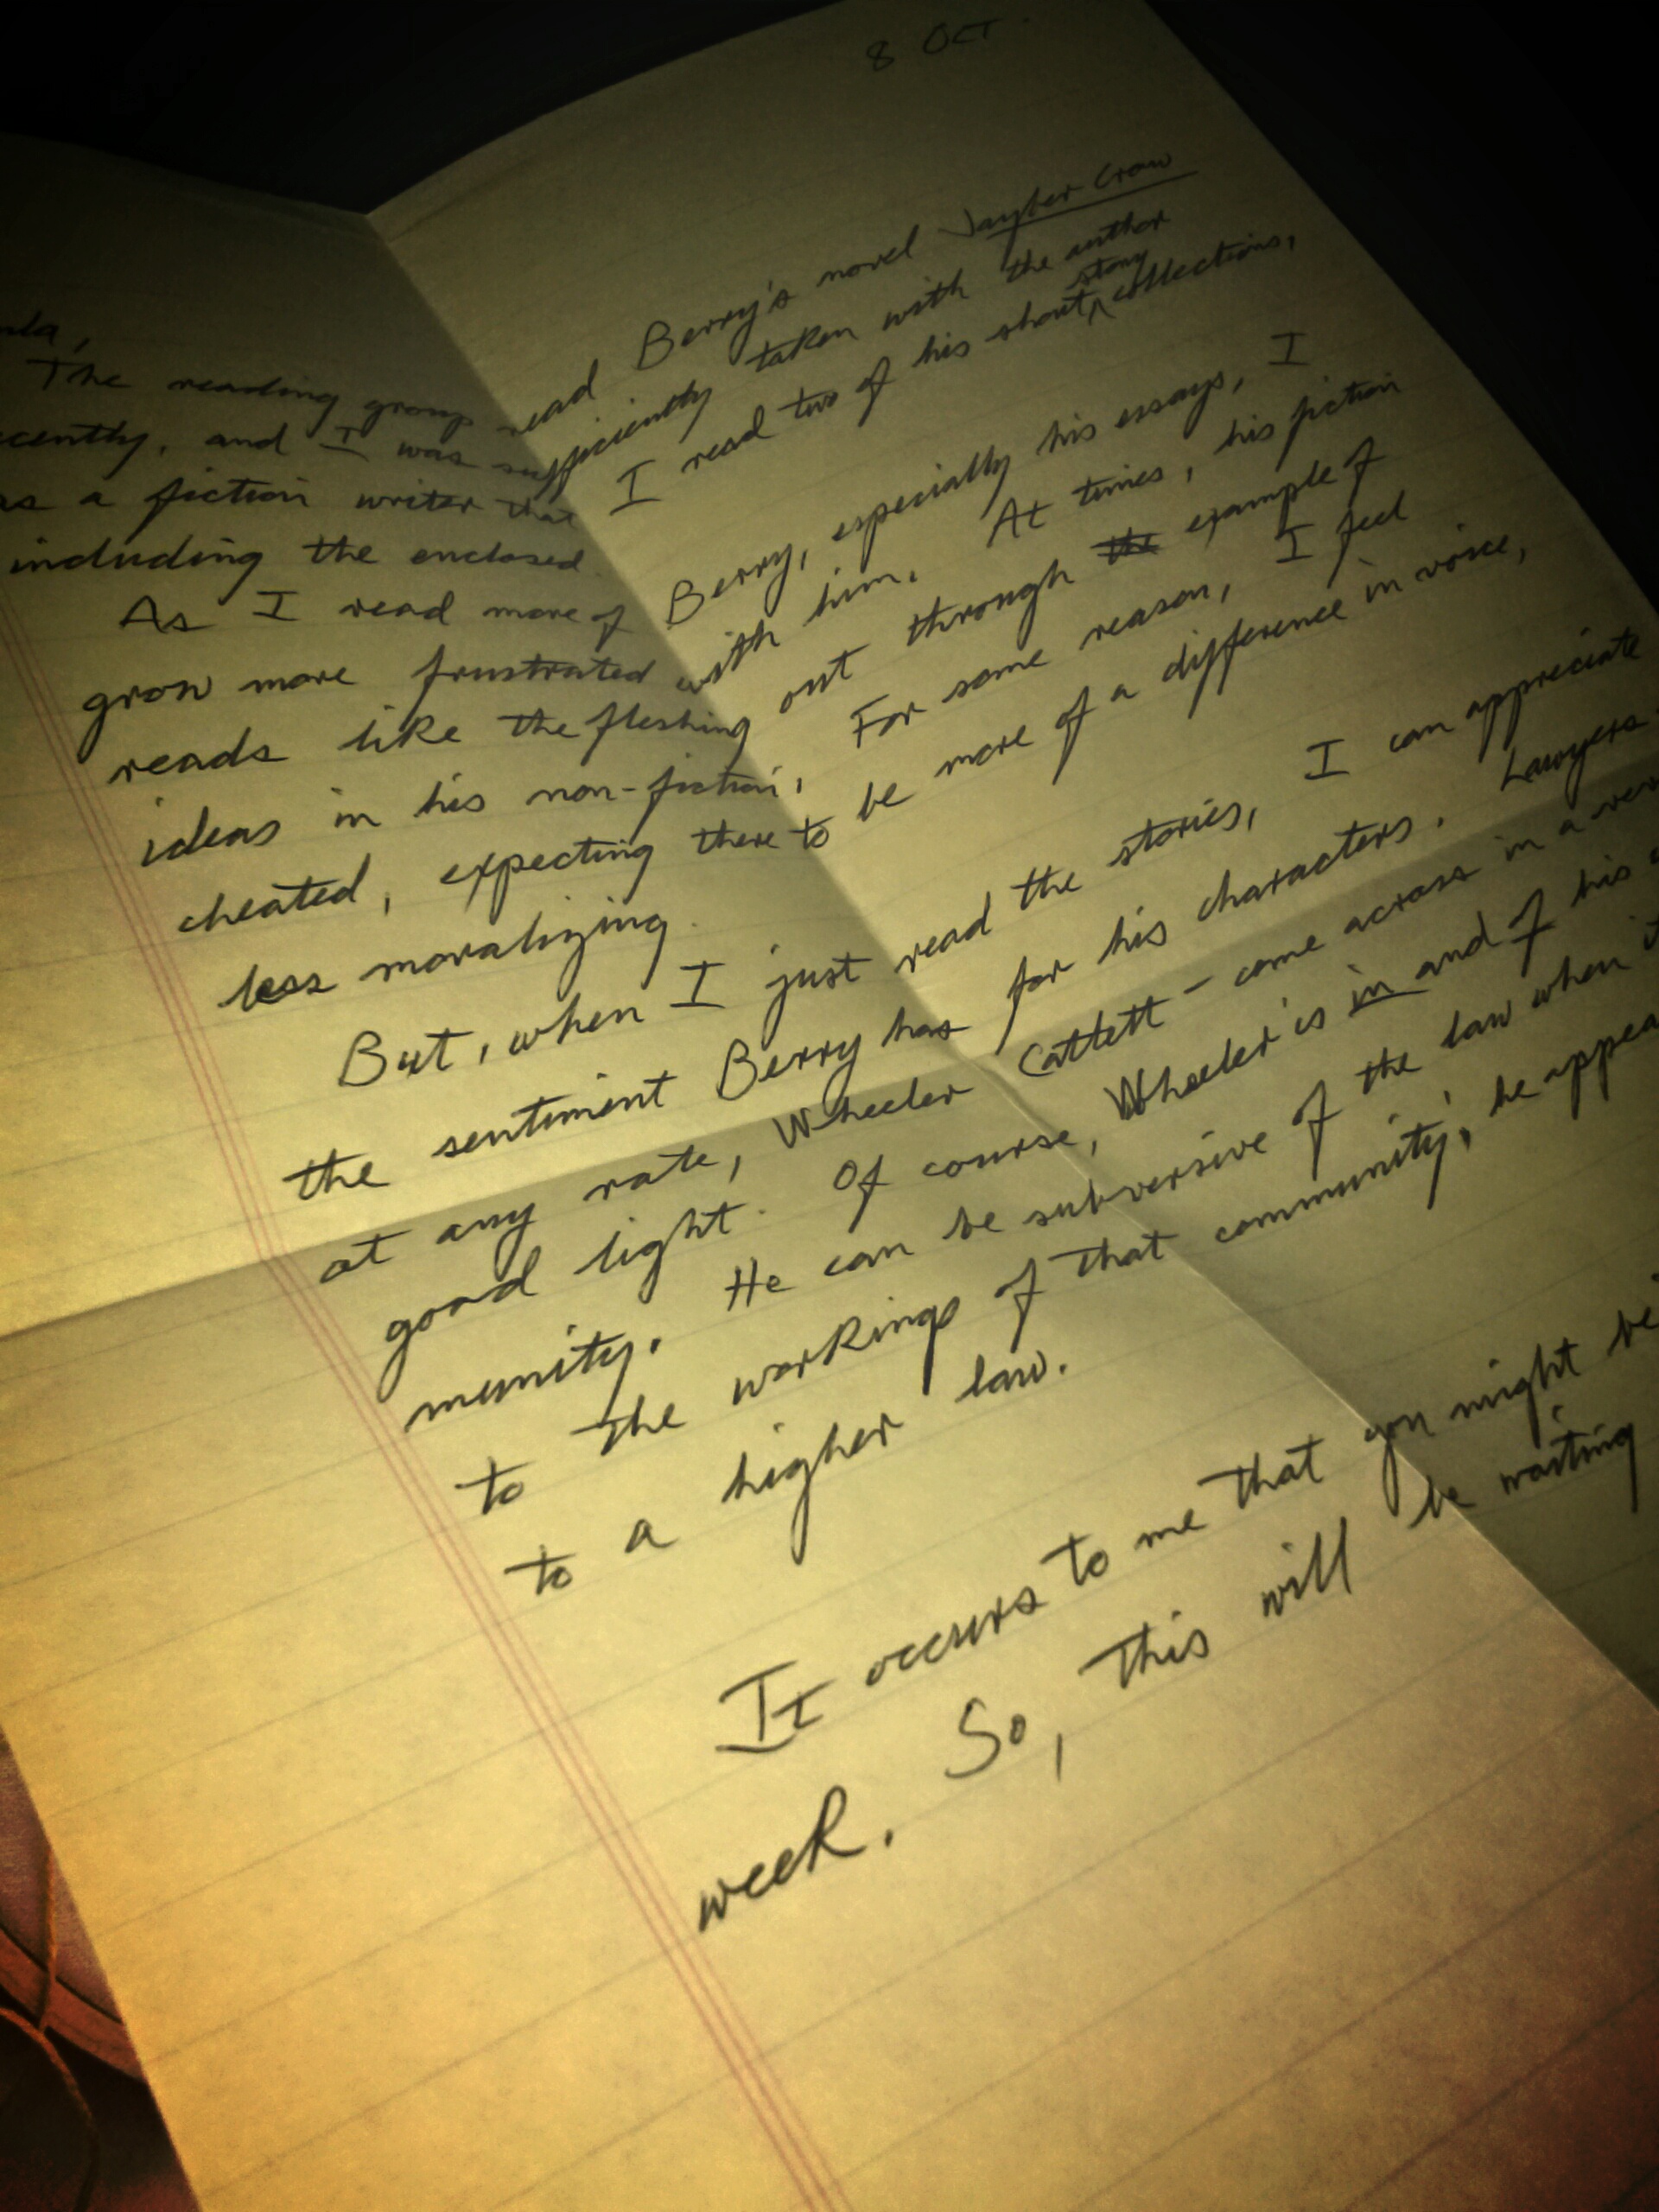 8 OCT.
The reading group read Berry's novel Jayber Crow
and I was sufficiently taken with the author
as a fiction writer that I read two of his short story collections,
including the enclosed.
As I read more of Berry, especially his essays, I
grow more frustrated with him. At times, his fiction
reads like the fleshing out through the example of
ideas in his non-fiction. For some reason, I feel
cheated, expecting there to be more of a difference in voice,
less moralizing.
But, when I just read the stories, I can appreciate
the sentiment Berry has for his characters. Lawyers
at any rate, Wheeler Cattlett - come across in a
good light. Of course, Wheeler is in and of his
munity. He can be subversive of the law when
to the workings of that community; he
to a higher law.
It occurs to me that you might
week. So, this will be waiting